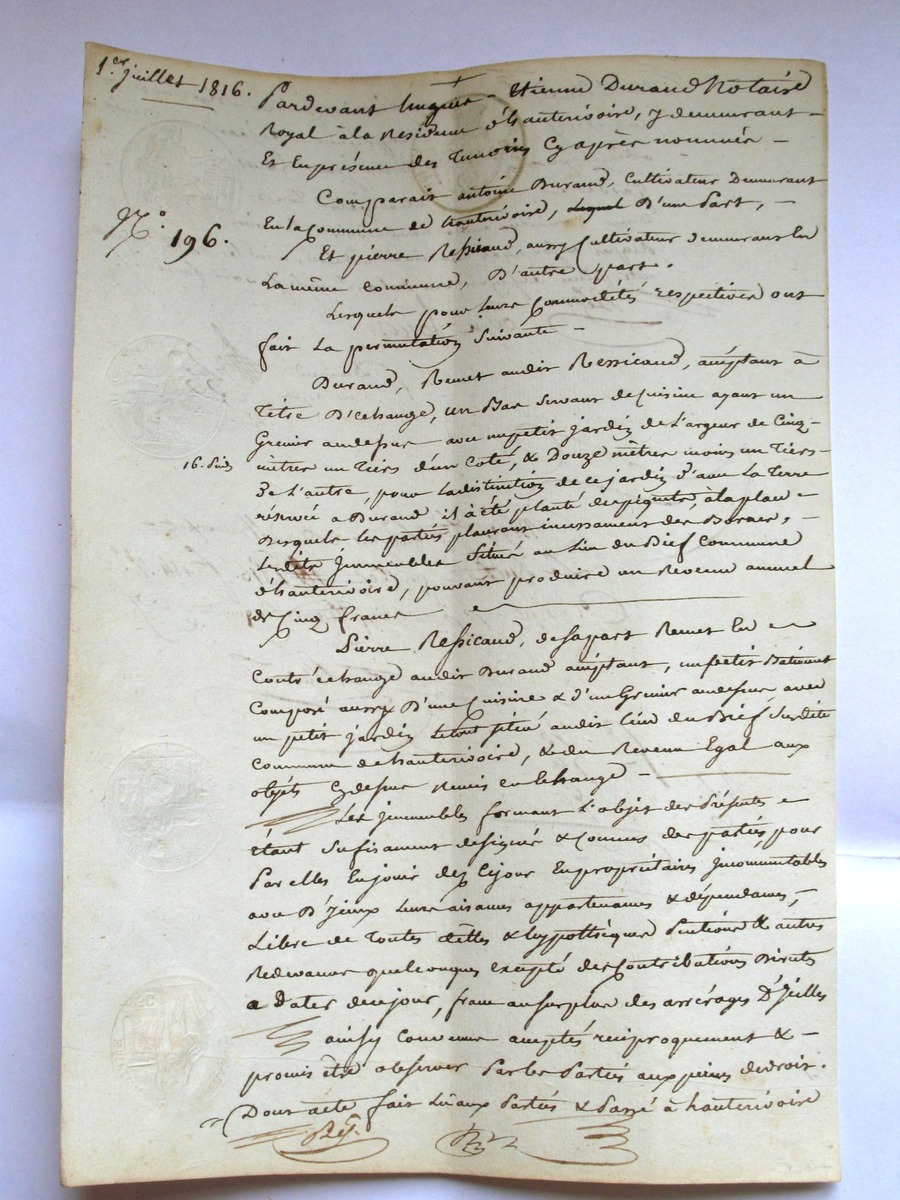 1.er juillet 1816.
Pardevant hugues - Etienne Durand Notaire
Royal à la Residence d'hauterivoire, y demeurant -
Et En présence des Temoins Cy après nommés -
Comparait antoine Durand, Cultivateur Demeurant
En la Commune de hauterivoire, D'une Part, -
N.o 196.
Et pierre Ressicaud, aussy Cultivateur demeurant En
La même Commune, D'autre part.
Lesquels pour leurs Commodités respectives ont
fait La permutation Suivante -
Durand, Remet audit Ressicaud, acceptant à
Titre D'Echange, un Bas Servant de Cuisine ayant un
Grenier audessus avec un petit jardin de L'argeur de Cinq-
mètres un Tiers d'un Coté, & Douze mètres moins un Tiers-
16. Pieds
De L'autre, pour La distinction de ce jardin d'avec La Terre
réservée a Durand il a été planté des piquets, à la place
Desquels les parties placeront incessament des Bornes, -
Lesdits Immeubles Situés au Lieu du Bief Commune
d'hauterivoire, pouvant produire un Revenu annuel
de Cinq francs
Pierre Ressicaud, de sa part Remet En
Contr'échange audit Durand acceptant, un petit Bâtiment
Composé aussy D'une Cuisine & d'un Grenier audessus avec
un petit jardin Le tout situé audit Lieu du Bief Susdite
Commune de hauterivoire, & du Revenu Egal aux
objets Cy dessus Remis en Echange -
Les Immeubles formant L'objet des Présentes
Etant Sufisament désignés & Connus des parties, pour
Par elles En jouir dez Ce jour En propriétaires Incommutables
avec D'Iceux Leurs aisances appartenances & dépendances, -
Libre de Toutes dettes & hypothèques Pentions & autres
Redevances quelconques excepté des Contributions Directes
a Dater de ce jour, franc au surplus des arrérages D'Icelles
ainsy Convenu acceptés réciproquement & -
promis être observer Par les Parties aux peines de droit.
Dont acte fait Lu aux Parties & Passé à hauterivoire